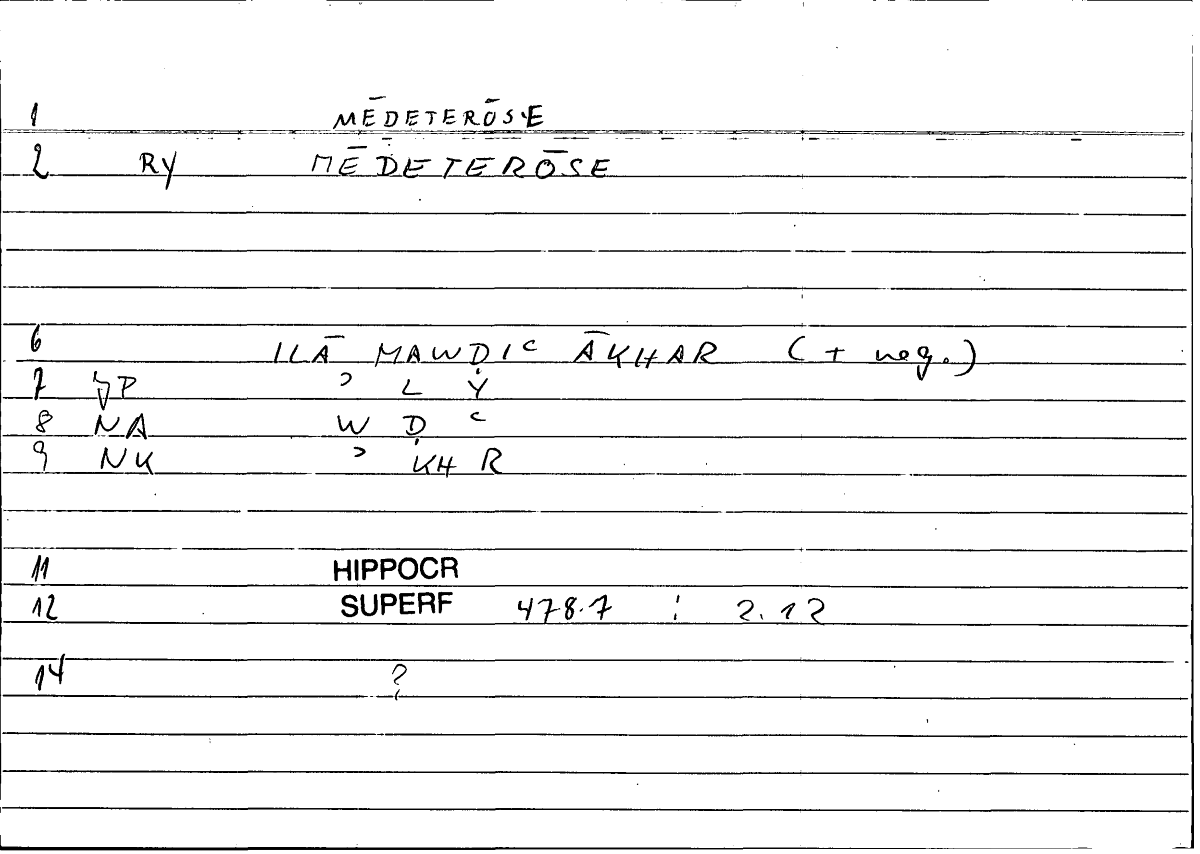 1 MĒDETERŌSE
2 RY MĒDETERŌSE
6 ILĀ MAWḌIʿ ĀKHAR (+ neg.)
7 ʾ L Ỵ
8 NA W Ḍ ʿ
9 NK ʾ KH R
11 HIPPOCR
12 SUPERF 478.7 : 2.12
14 ?